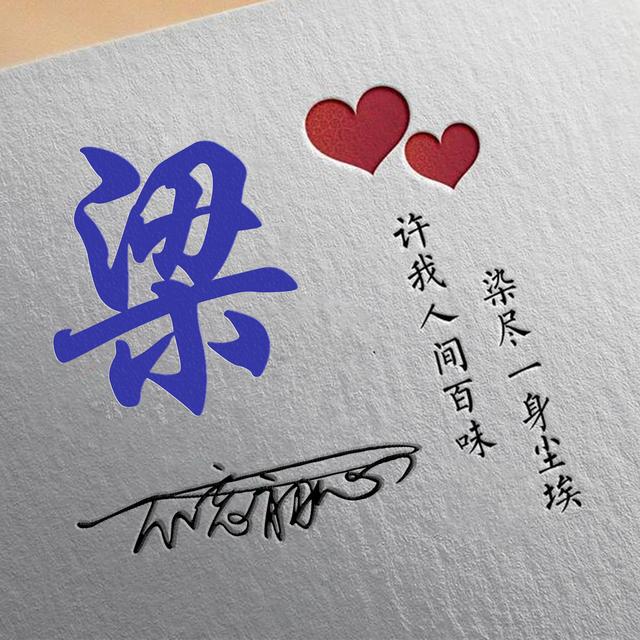 梁
许我人间百味
染尽一身尘埃